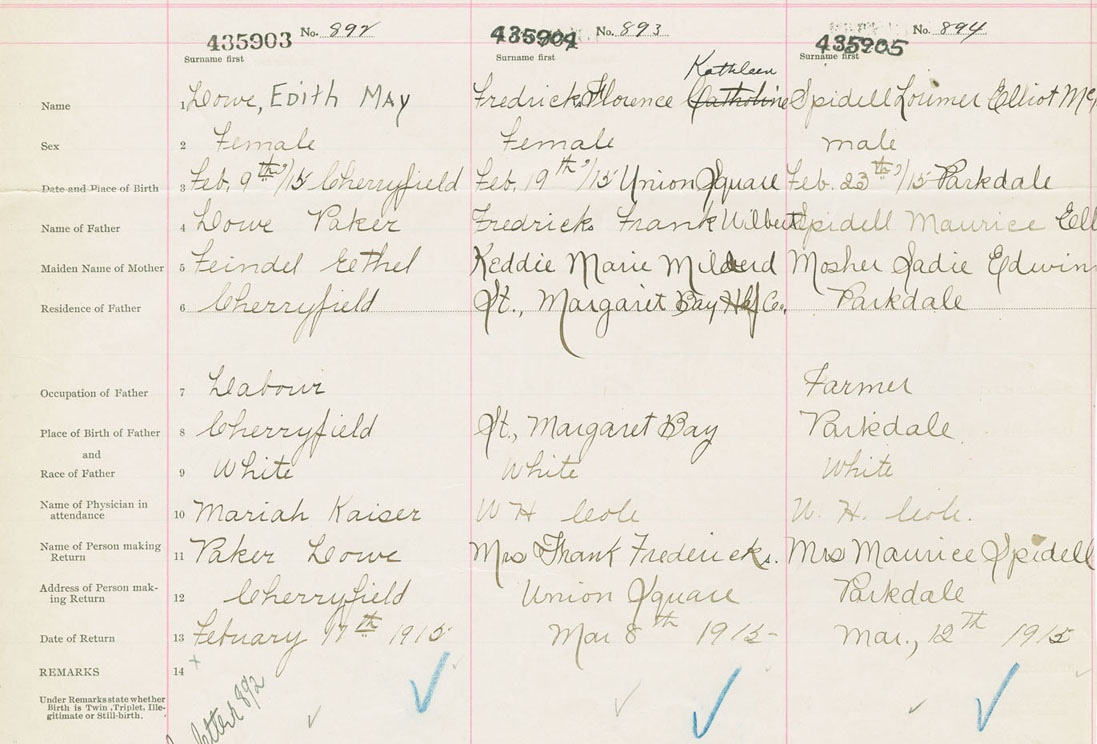 435903 No. 892 435904 No. 893 435905 No. 894
Surname first Surname first Surname first
Kathleen
Name 1 Lowe, Edith May Fredricks Florence Spidell Lorimer Elliot
Sex 2 Female Female male
Date and Place of Birth 3 Feb. 9th/15 Cherryfield Feb. 19th/15 Union Square Feb. 23th/15 Parkdale
Name of Father 4 Lowe Paker Fredricks Frank Wilbert Spidell Maurice Ell
Maiden Name of Mother 5 Feindel Eethel Keddie Marie Milderd Mosher Sadie Edwin
Residence of Father 6 Cherryfield St., Margaret Bay Hfx Co. Parkdale
Occupation of Father 7 Labour Farmer
Place of Birth of Father 8 Cherryfield St., Margaret Bay Parkdale
and
Race of Father 9 White White White
Name of Physician in
attendance 10 Mariah Kaiser W H Cole W. H. Cole.
Name of Person making
Return 11 Paker Lowe Mrs Frank Fredericks. Mrs Maurice Spidell
Address of Person mak-
ing Return 12 Cherryfield Union Square Parkdale
Date of Return 13 Febuary 17th 1915 Mar 8th 1915 Mar., 12th 1915
REMARKS 14
Under Remarks state whether
Birth is Twin, Triplet, Ille-
gitimate or Still-birth.
letter 892